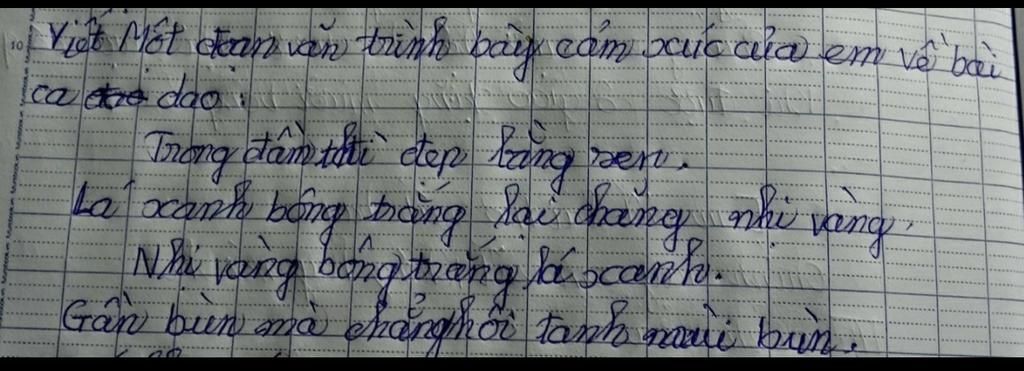 Viết Một đoạn văn trình bày cảm xúc của em về bài
ca dao:
Trong đầm thì đẹp bằng sen.
Lá xanh bông trắng lại chăng nhi vàng.
Nhi vàng bông trắng lá xanh.
Gần bùn mà chẳng hôi tanh mùi bùn.